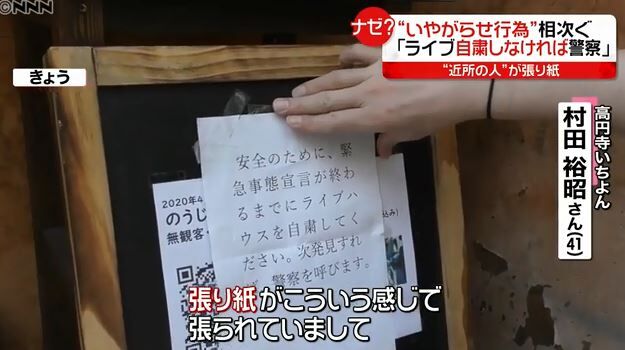 NNN
きょう
ナゼ?
“いやがらせ行為”相次ぐ
「ライブ自粛しなければ警察」
“近所の人”が張り紙
高円寺いちよん
村田 裕昭さん(41)
安全のために、緊
急事態宣言が終わ
るまでにライブハ
ウスを自粛してく
ださい。次発見すれ
警察を呼びます。
2020年4
のうじ
無観客
込み)
張り紙がこういう感じで
張られていまして